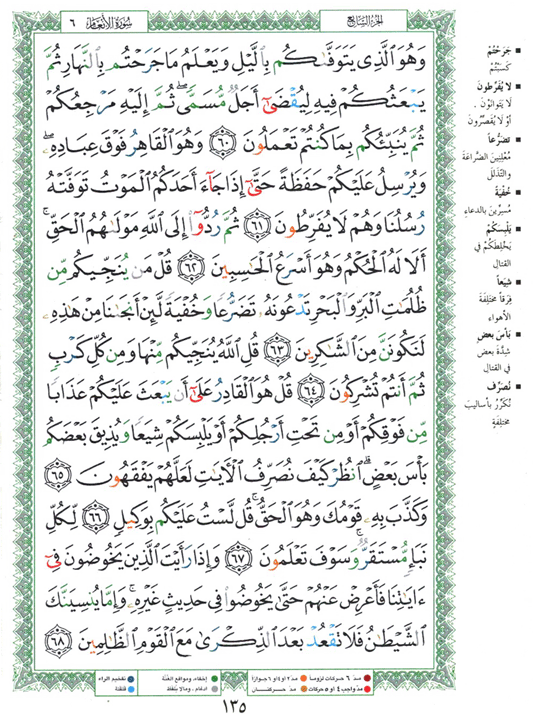 سُورَةُ الأنعَام ٦
الجزء السابع
وَهُوَ الَّذِى يَتَوَفَّىٰكُم بِالَّيْلِ وَيَعْلَمُ مَا جَرَحْتُم بِالنَّهَارِ ثُمَّ
يَبْعَثُكُمْ فِيهِ لِيُقْضَىٰٓ أَجَلٌ مُّسَمًّى ۖ ثُمَّ إِلَيْهِ مَرْجِعُكُمْ
ثُمَّ يُنَبِّئُكُم بِمَا كُنتُمْ تَعْمَلُونَ ٦٠ وَهُوَ الْقَاهِرُ فَوْقَ عِبَادِهِۦ ۖ
وَيُرْسِلُ عَلَيْكُمْ حَفَظَةً حَتَّىٰٓ إِذَا جَآءَ أَحَدَكُمُ الْمَوْتُ تَوَفَّتْهُ
رُسُلُنَا وَهُمْ لَا يُفَرِّطُونَ ٦١ ثُمَّ رُدُّوٓا۟ إِلَى اللَّهِ مَوْلَىٰهُمُ الْحَقِّ ۚ
أَلَا لَهُ الْحُكْمُ وَهُوَ أَسْرَعُ الْحَاسِبِينَ ٦٢ قُلْ مَن يُنَجِّيكُم مِّن
ظُلُمَاتِ الْبَرِّ وَالْبَحْرِ تَدْعُونَهُۥ تَضَرُّعًا وَخُفْيَةً لَّئِنْ أَنجَىٰنَا مِنْ هَٰذِهِۦ
لَنَكُونَنَّ مِنَ الشَّٰكِرِينَ ٦٣ قُلِ اللَّهُ يُنَجِّيكُم مِّنْهَا وَمِن كُلِّ كَرْبٍ
ثُمَّ أَنتُمْ تُشْرِكُونَ ٦٤ قُلْ هُوَ الْقَادِرُ عَلَىٰٓ أَن يَبْعَثَ عَلَيْكُمْ عَذَابًا
مِّن فَوْقِكُمْ أَوْ مِن تَحْتِ أَرْجُلِكُمْ أَوْ يَلْبِسَكُمْ شِيَعًا وَيُذِيقَ بَعْضَكُم
بَأْسَ بَعْضٍ ۗ انظُرْ كَيْفَ نُصَرِّفُ الْآيَٰتِ لَعَلَّهُمْ يَفْقَهُونَ ٦٥
وَكَذَّبَ بِهِۦ قَوْمُكَ وَهُوَ الْحَقُّ ۚ قُل لَّسْتُ عَلَيْكُم بِوَكِيلٍ ٦٦ لِّكُلِّ
نَبَإٍ مُّسْتَقَرٌّ ۚ وَسَوْفَ تَعْلَمُونَ ٦٧ وَإِذَا رَأَيْتَ الَّذِينَ يَخُوضُونَ فِىٓ
ءَايَٰتِنَا فَأَعْرِضْ عَنْهُمْ حَتَّىٰ يَخُوضُوا۟ فِى حَدِيثٍ غَيْرِهِۦ ۚ وَإِمَّا يُنسِيَنَّكَ
الشَّيْطَٰنُ فَلَا تَقْعُدْ بَعْدَ الذِّكْرَىٰ مَعَ الْقَوْمِ الظَّٰلِمِينَ ٦٨
جَرَحْتُمْ
كَسَبْتُمْ
لا يُفَرِّطُونَ
لا يَتَوانَوْنَ
أو لا يُقَصِّرُونَ
تَضَرُّعاً
مُعْلِنينَ الضَّراعَةَ
والتَّذَلُّلَ
خُفْيَةً
مُسِرِّينَ بالدعاءِ
يَلْبِسَكُمْ
يَخْلِطَكُمْ في
القتال
شِيَعاً
فِرَقاً مختلفةَ
الأهواء
بَأْسَ بعضٍ
شِدَّةَ بعض
في القتال
نُصَرِّفُ
نُكَرِّرُ بأساليبَ
مختلفةٍ
مدّ ٦ حركات لزوماً
مدّ ٢ أو ٤ أو ٦ جوازاً
إخفاء، ومواقع الغُنَّة
تفخيم الراء
مدّ واجب ٤ أو ٥ حركات
مدّ حركتان
إدغام، وما لا يُلفظ
قلقلة
١٣٥